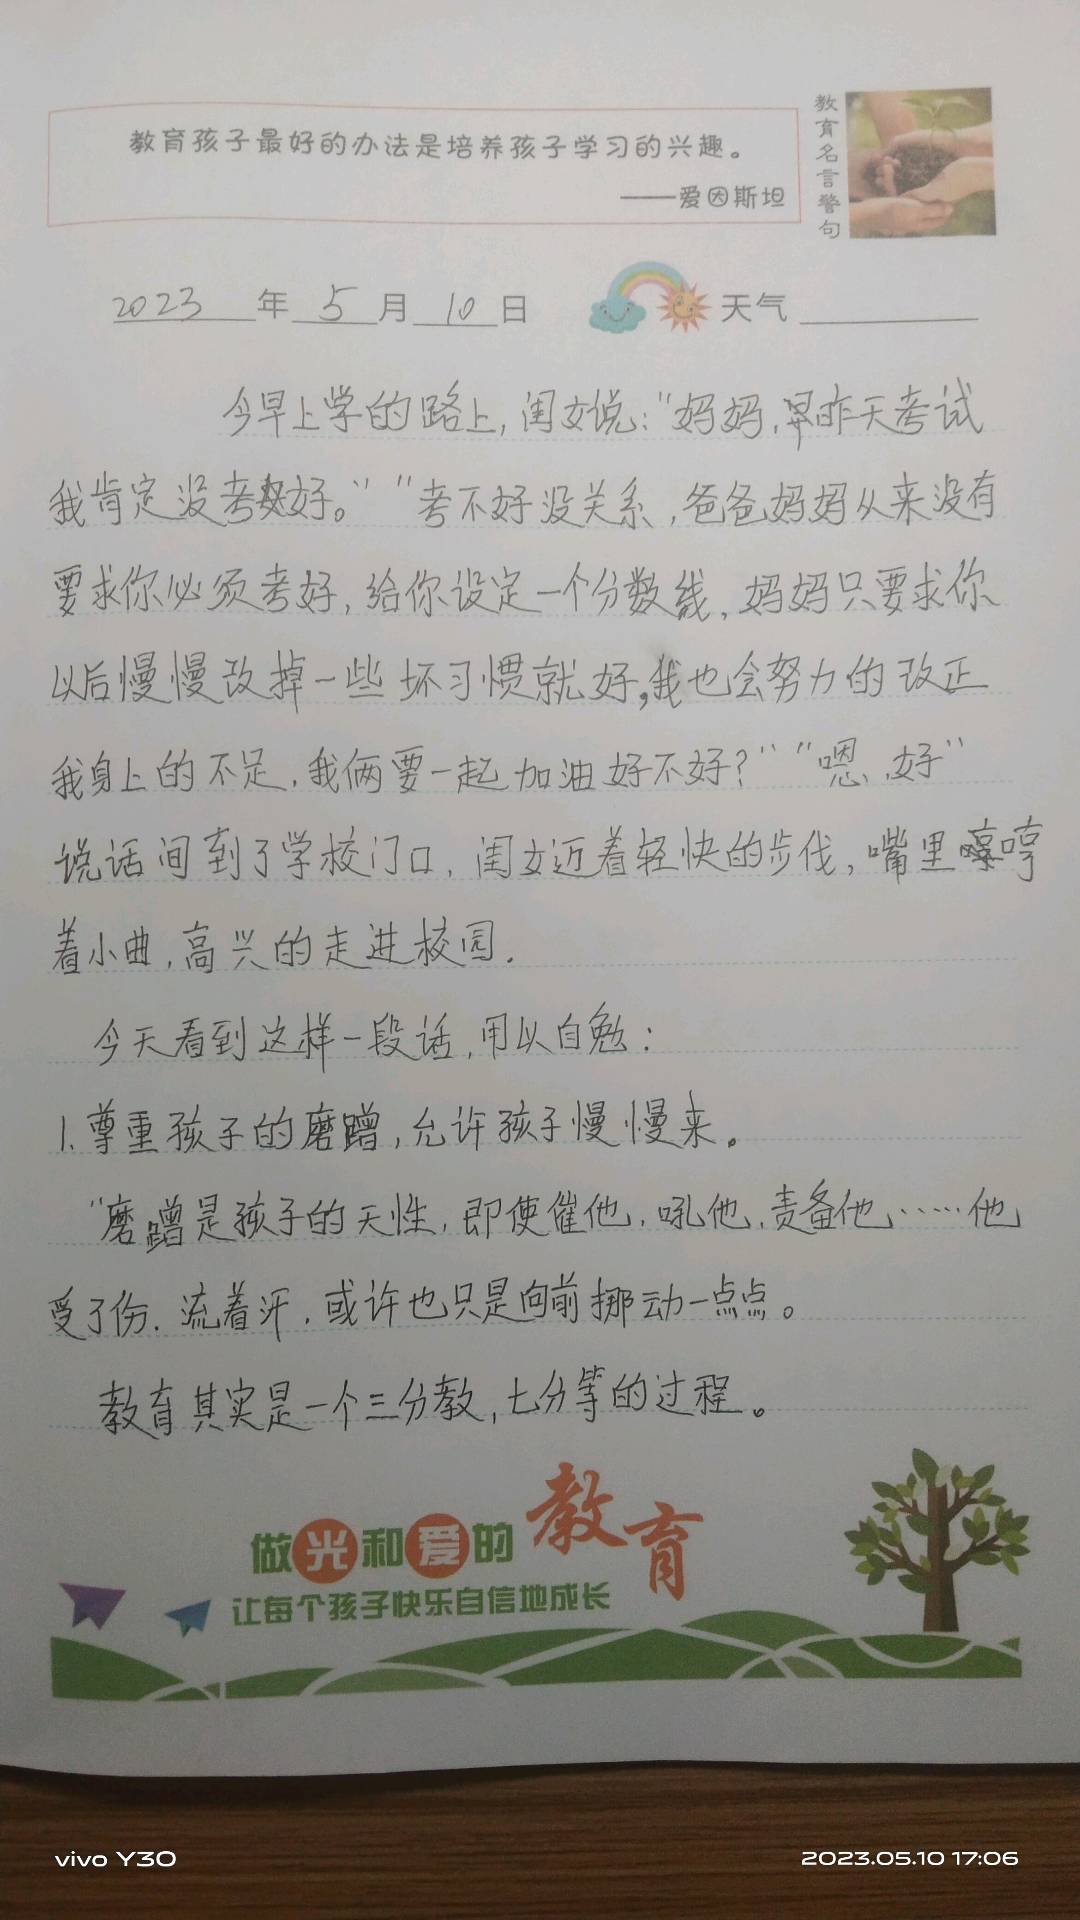 教育孩子最好的办法是培养孩子学习的兴趣。
——爱因斯坦
教育名言警句
2023年5月10日 天气
今早上学的路上,闺女说:“妈妈,昨天考试
我肯定没考好。”“考不好没关系,爸爸妈妈从来没有
要求你必须考好,给你设定一个分数线,妈妈只要求你
以后慢慢改掉一些坏习惯就好,我也会努力的改正
我身上的不足,我俩要一起加油好不好?”“嗯,好”
说话间到了学校门口,闺女迈着轻快的步伐,嘴里哼
着小曲,高兴的走进校园.
今天看到这样一段话,用以自勉:
1.尊重孩子的磨蹭,允许孩子慢慢来。
“磨蹭是孩子的天性,即使催他,吼他,责备他……他
受了伤.流着汗,或许也只是向前挪动一点点。
教育其实是一个三分教,七分等的过程。
做光和爱的教育
让每个孩子快乐自信地成长
vivo Y30
2023.05.10 17:06